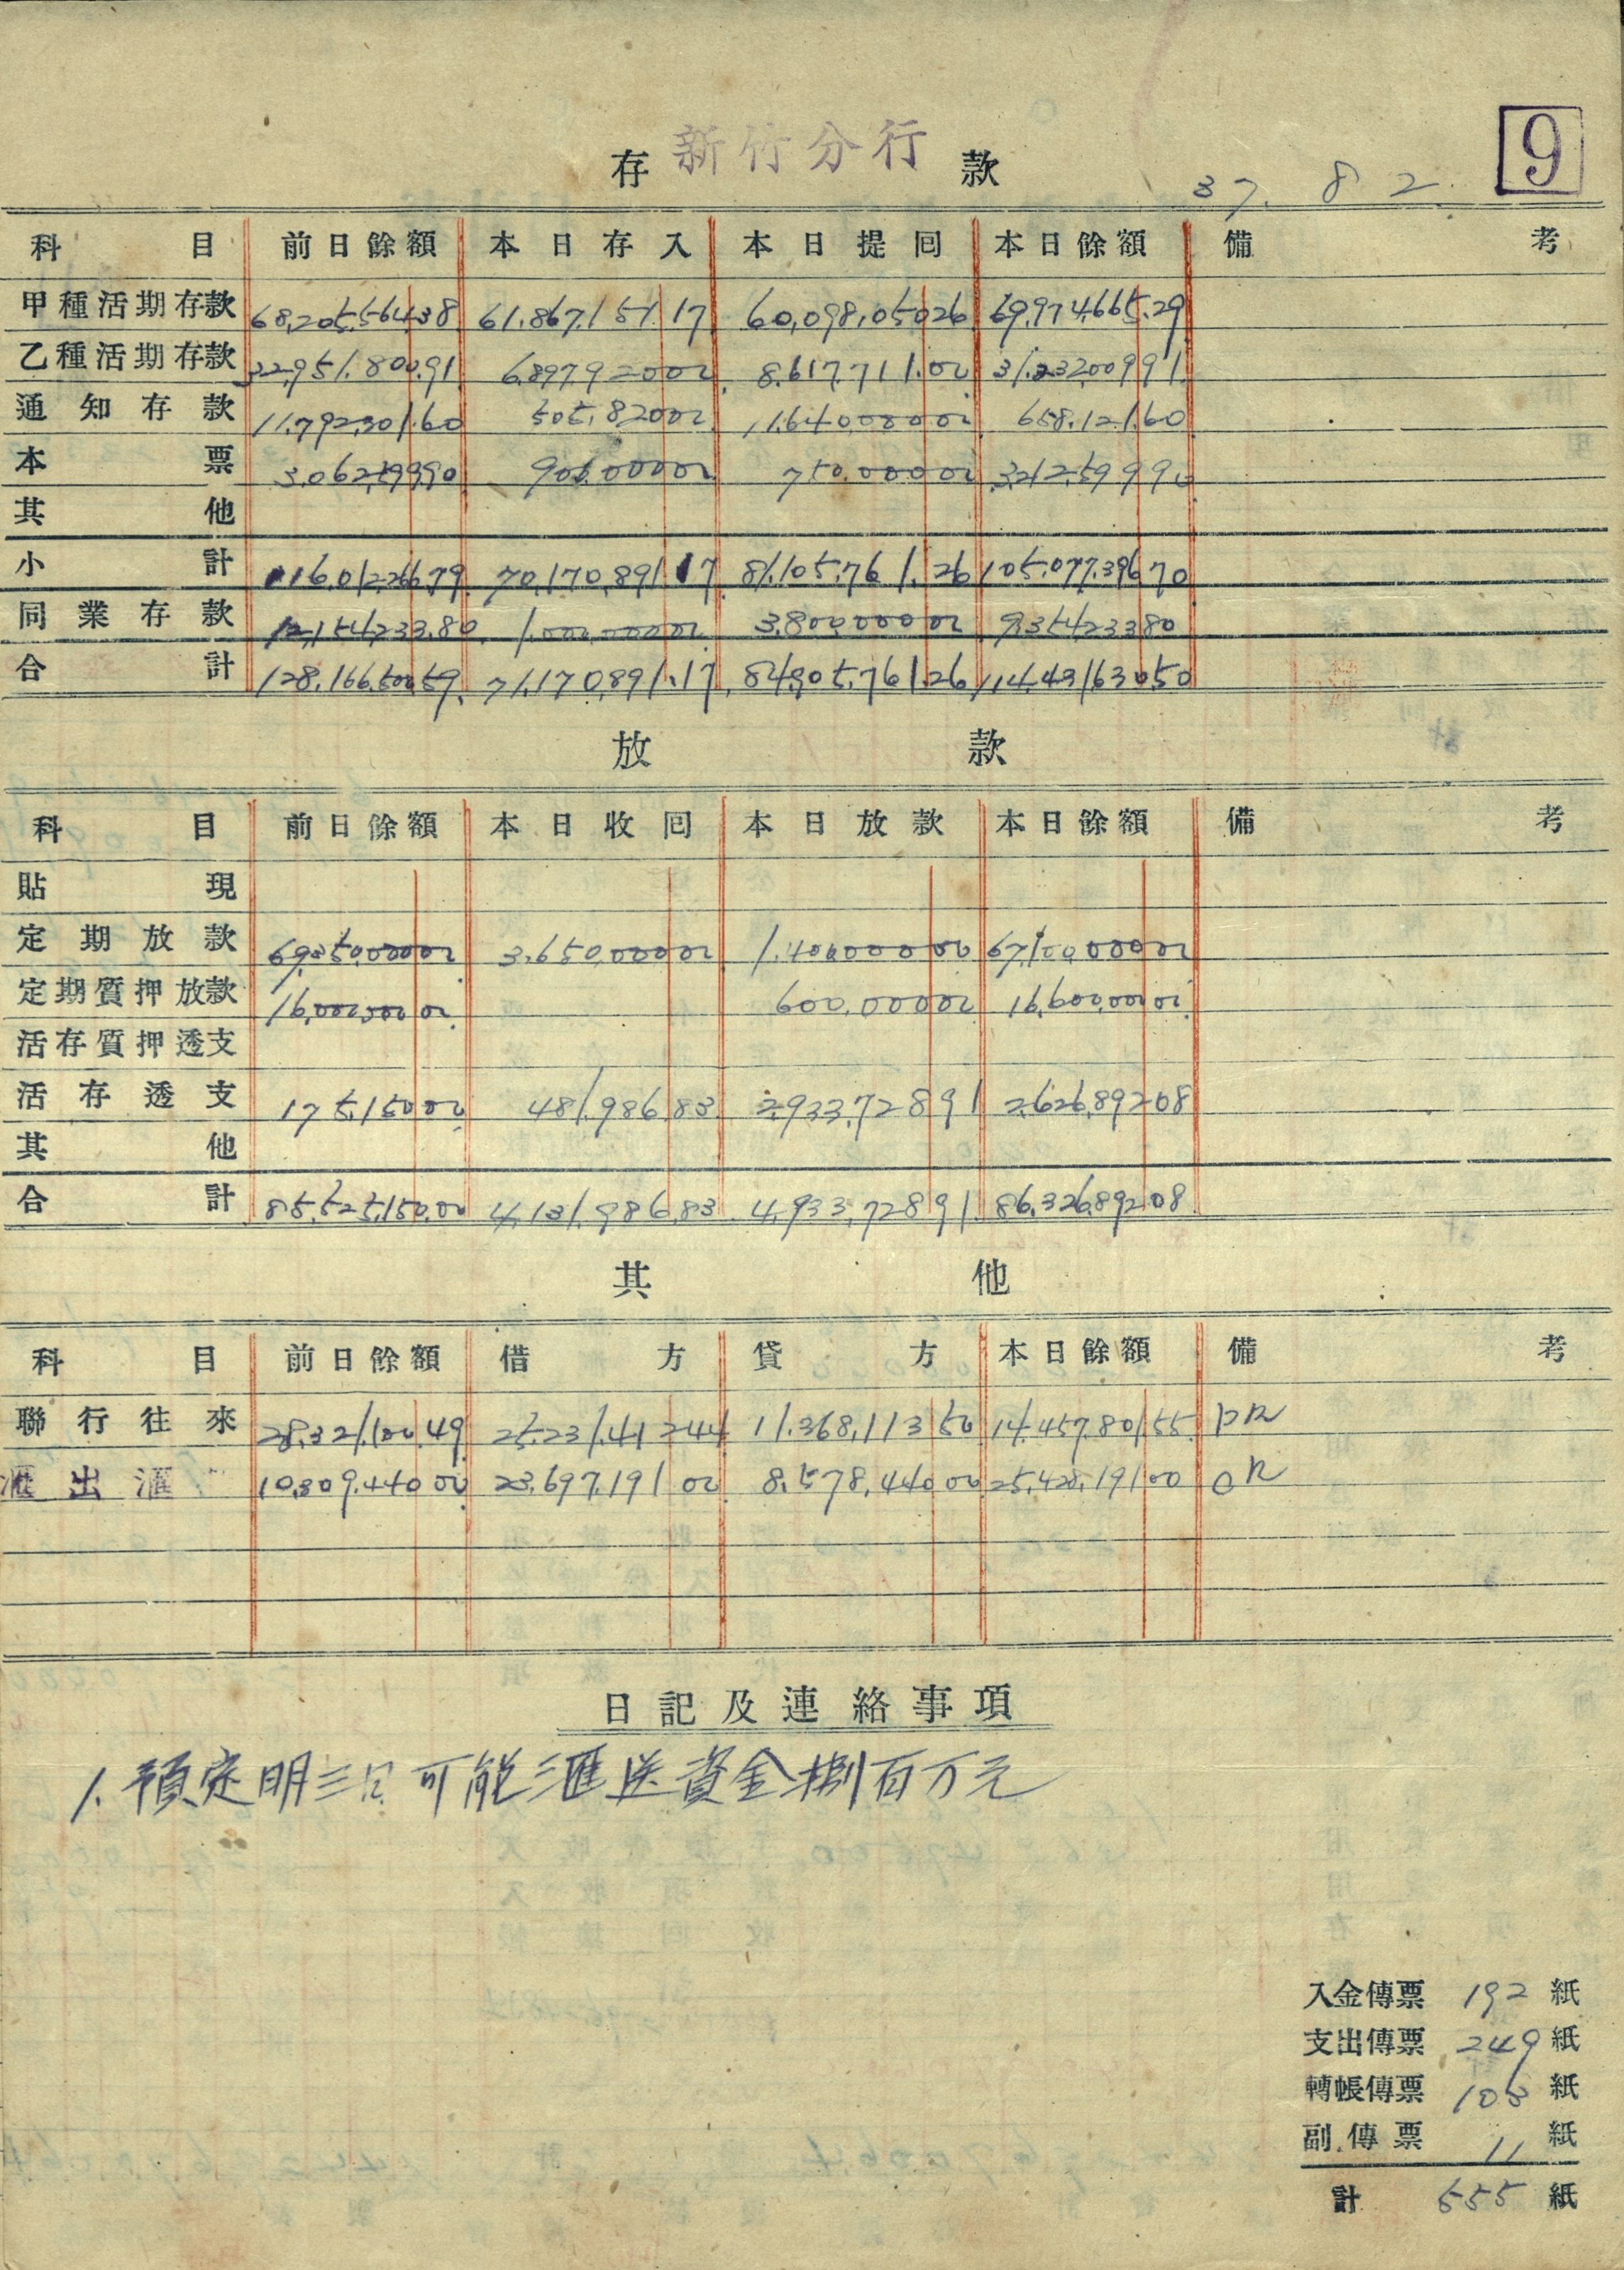 存 新竹分行 款
37. 8 2.
9
科目 前日餘額 本日存入 本日提囘 本日餘額 備考
甲種活期存款 68,205,564.38 61,867,151.17 60,098,050.26 69,974,665.29
乙種活期存款 32,951,800.91 6,897,920.00 8,617,711.00 31,232,009.91
通知存款 11,792,301.60 505,820.00 11,640,000.00 658,121.60
本票 3,062,599.90 900,000.00 750,000.00 3,212,599.90
其他
小計 116,012,266.79 70,170,891.17 81,105,761.26 105,077,396.70
同業存款 12,154,233.80 1,000,000.00 3,800,000.00 9,354,233.80
合計 128,166,500.59 71,170,891.17 84,905,761.26 114,431,630.50
放款
科目 前日餘額 本日收囘 本日放款 本日餘額 備考
貼現
定期放款 69,350,000.00 3,650,000.00 1,400,000.00 67,100,000.00
定期質押放款 16,000,000.00 600,000.00 16,600,000.00
活存質押透支
活存透支 175,150.00 481,986.83 2,933,728.91 2,626,892.08
其他
合計 85,525,150.00 4,131,986.83 4,933,728.91 86,326,892.08
其他
科目 前日餘額 借方 貸方 本日餘額 備考
聯行往來 28,321,100.49 25,231,412.44 11,368,113.50 14,457,801.55 DR
匯出匯 10,309,440.00 23,697,191.00 8,578,440.00 25,428,191.00 CR
日記及連絡事項
1. 預定明三日可能匯送資金捌百万元
入金傳票 192 紙
支出傳票 249 紙
轉帳傳票 103 紙
副傳票 11 紙
計 555 紙